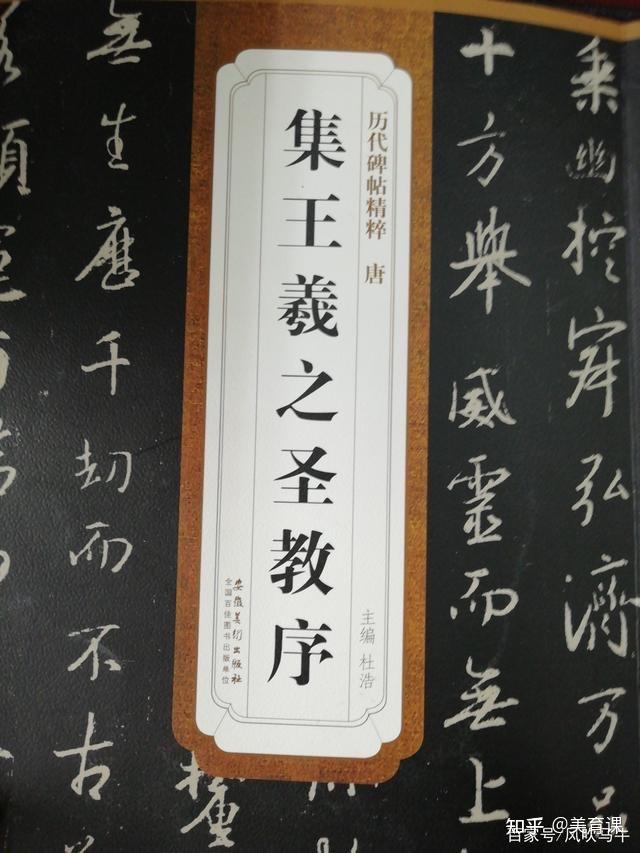 乘幽控寂弘濟万品
十方舉威靈而無上
历代碑帖精粹 唐
主编 杜浩
集王羲之圣教序
安徽美术出版社
全国百佳图书出版单位
無生應千劫而不古
知乎 @美育课
百家号/风吹马牛